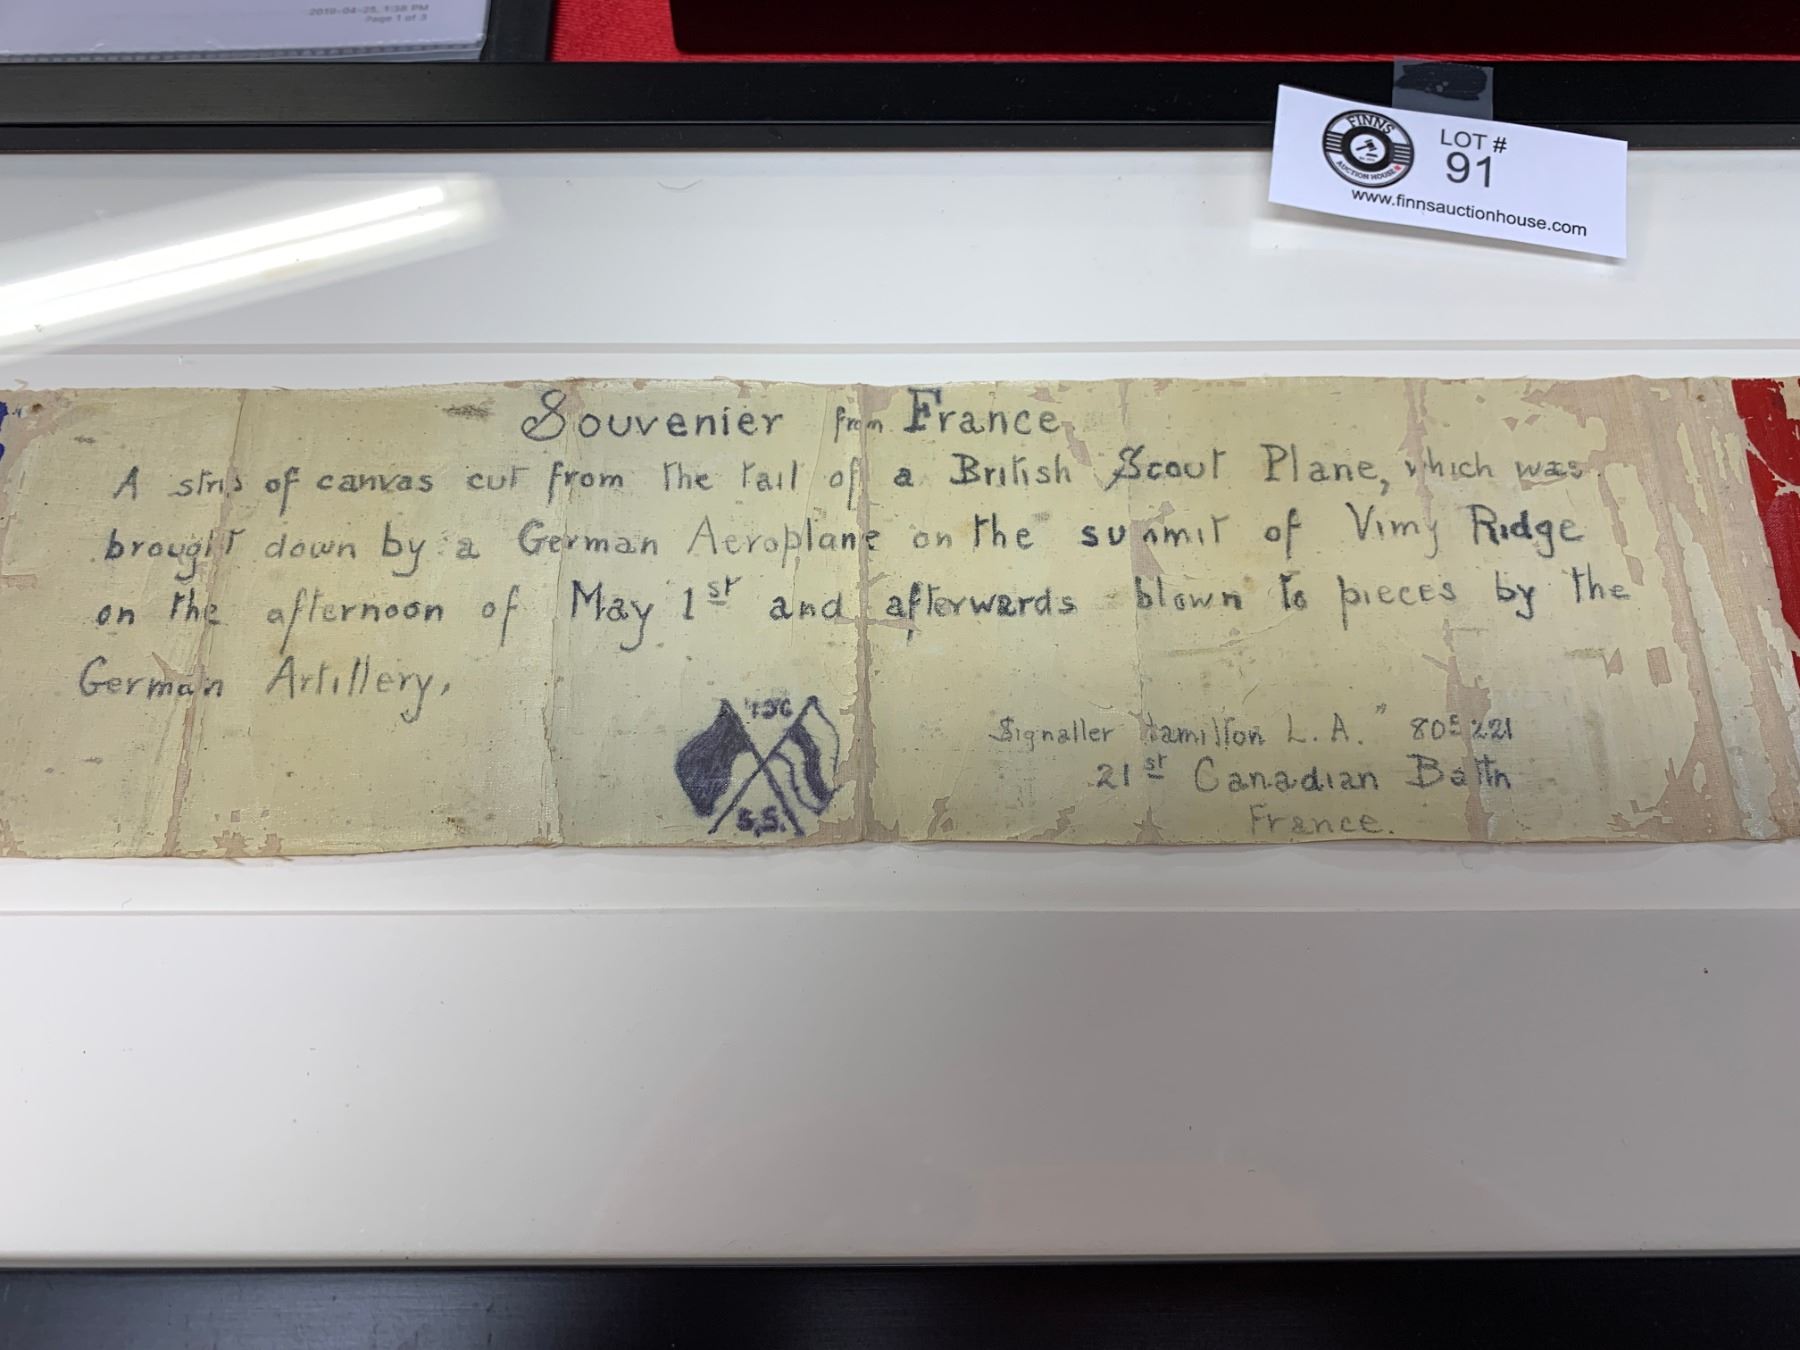 2019-04-25, 1:38 PM
Page 1 of 3
FINNS
AUCTION HOUSE
LOT #
91
www.finnsauctionhouse.com
Souvenier from France
A strip of canvas cut from the tail of a British Scout Plane, which was
brought down by a German Aeroplane on the summit of Vimy Ridge
on the afternoon of May 1st and afterwards blown to pieces by the
German Artillery,
S.S.
Signaller Hamilton L. A. " 805221
21st Canadian Battn
France.